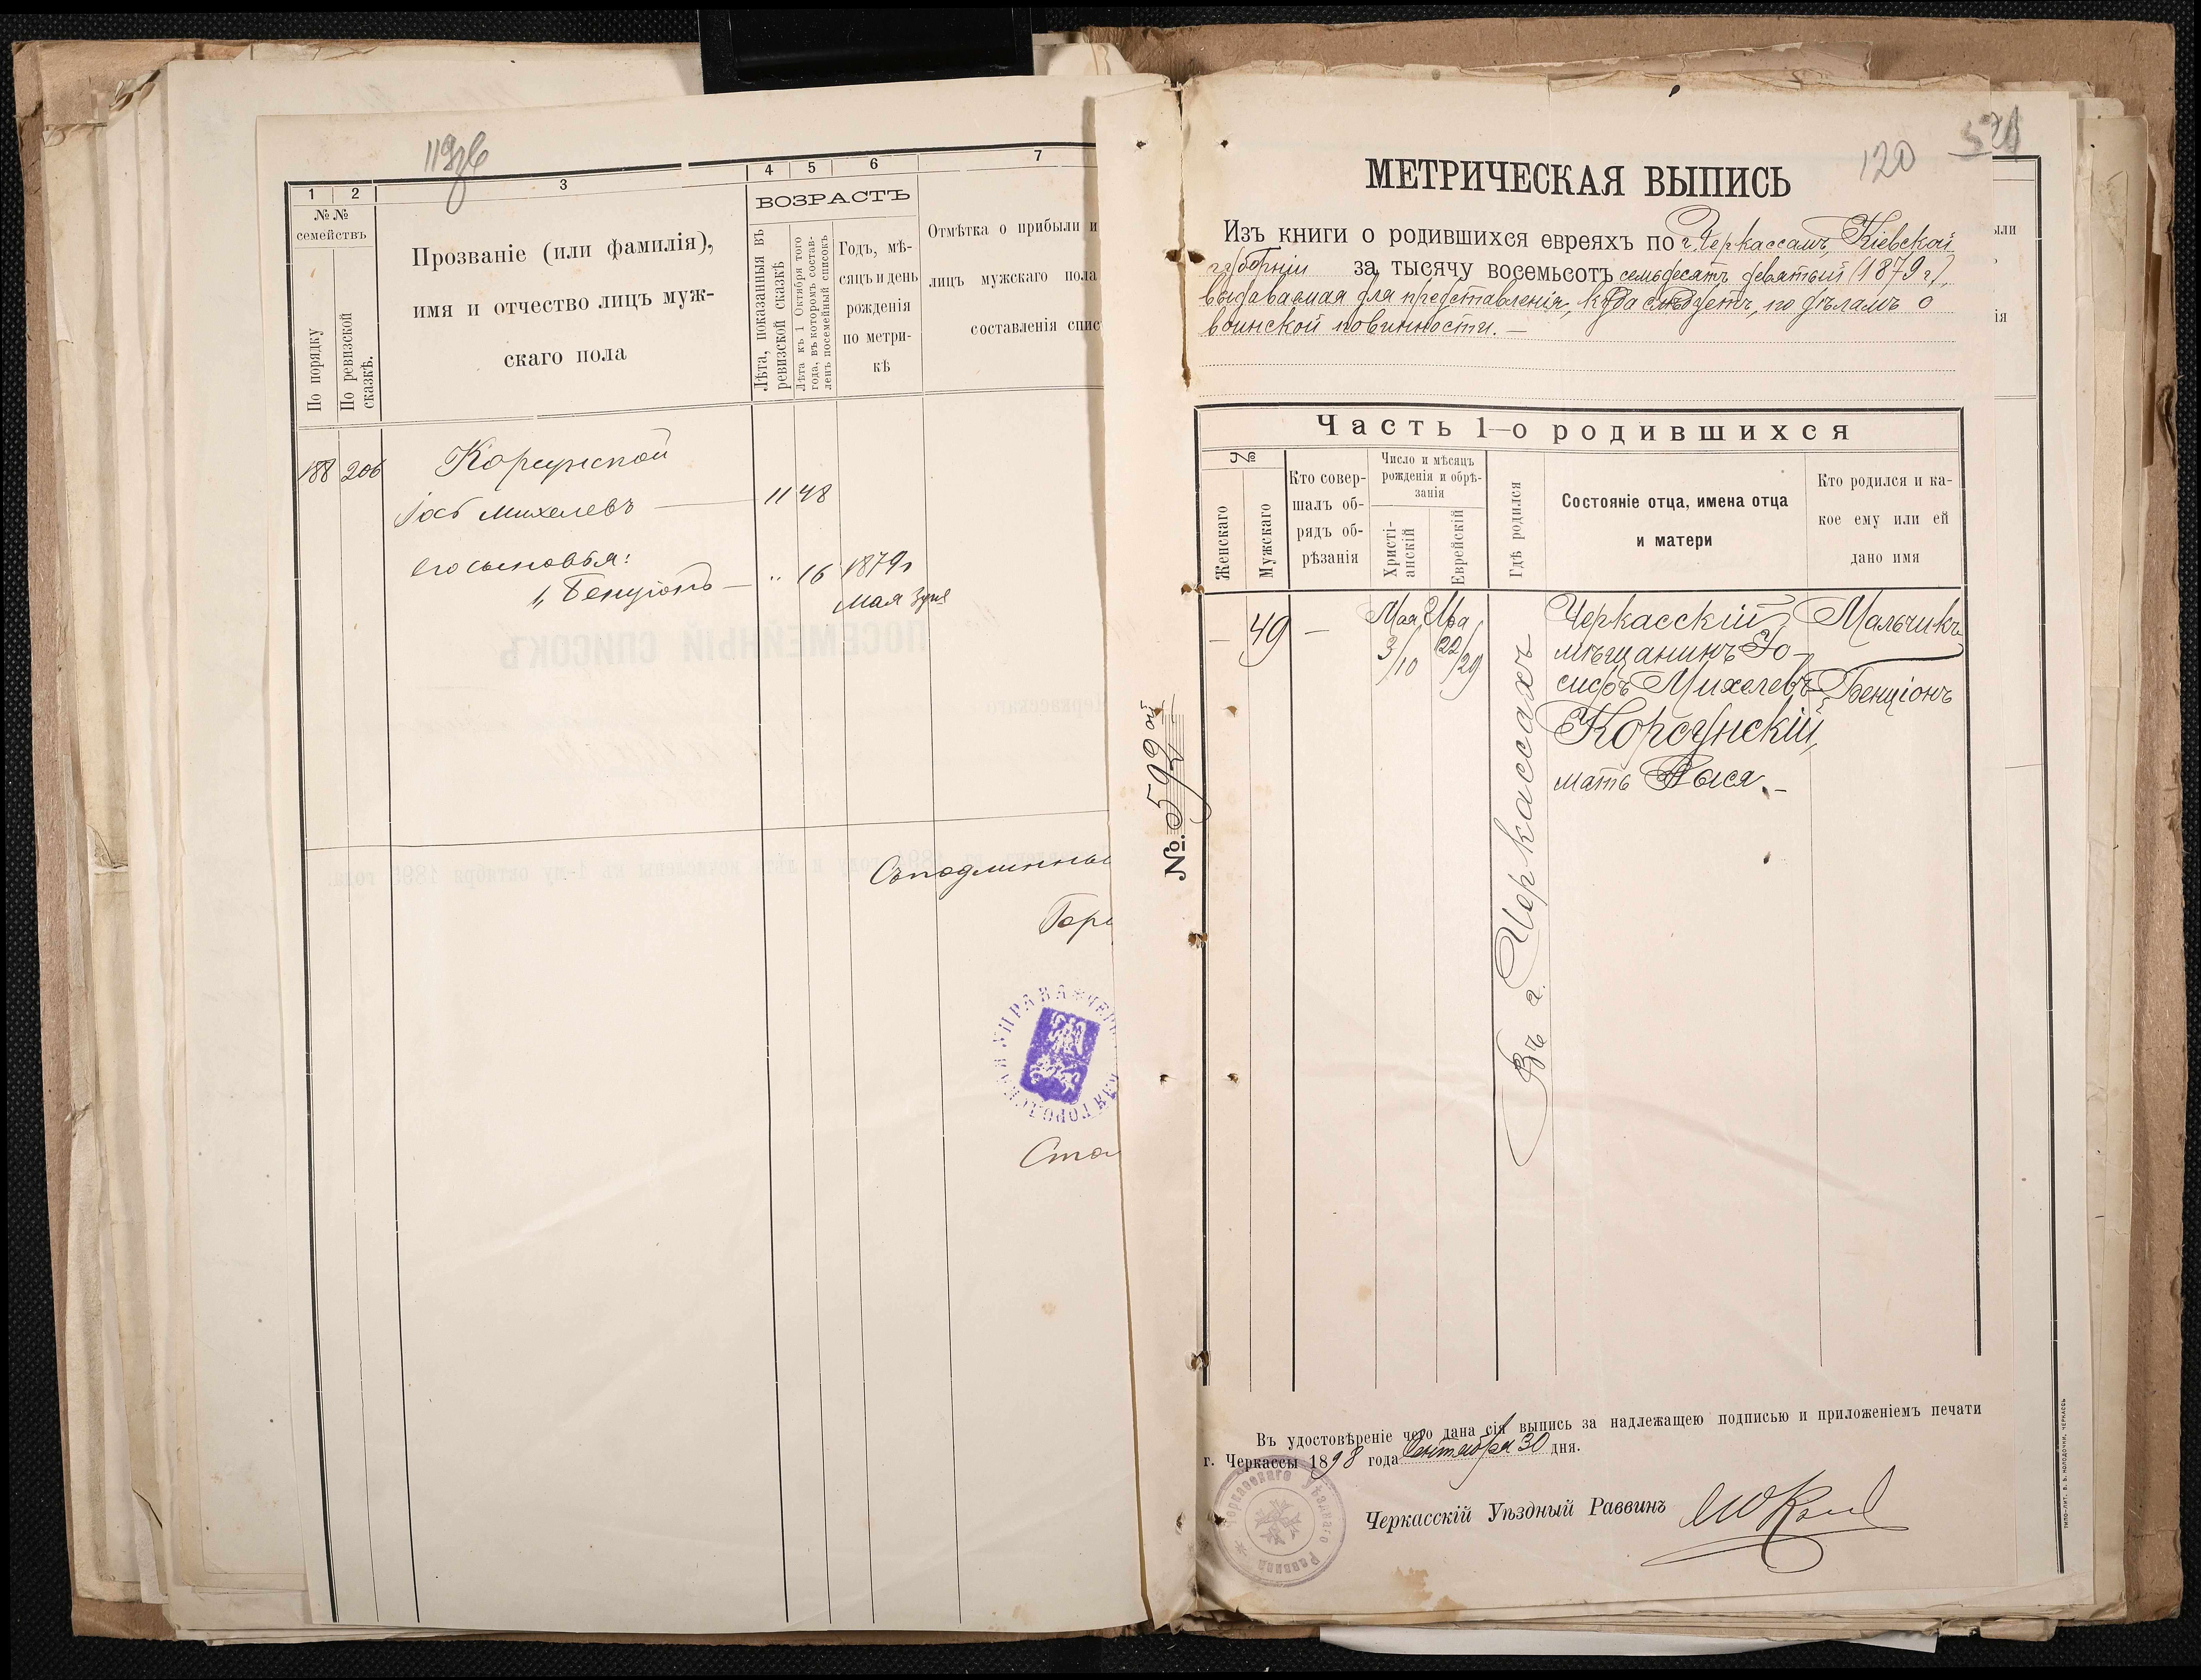 119об
1 2 3 4 5 6 7
№№ семействъ
По порядку
По ревизской сказкѣ.
Прозваніе (или фамилія),
имя и отчество лицъ муж-
скаго пола
ВОЗРАСТЪ
Лѣта, показанныя въ
ревизской сказкѣ
Лѣта къ 1 Октября того
года, въ которомъ состав-
ленъ посемейный списокъ
Годъ, мѣ-
сяцъ и день
рожденія
по метри-
кѣ
Отмѣтка о прибыли и
лицъ мужскаго пола
составленія спис
188 206 Корсунской
Іось Михелевъ — 11 48
его сыновья:
1, Бенціонъ — " 16 1879г
Мая 3дня
Съподлинны
Горо
УПРАВА * ЧЕР
КАЯ ГОРОДСКАЯ
Ста
120
МЕТРИЧЕСКАЯ ВЫПИСЬ
Изъ книги о родившихся евреяхъ по г. Черкассамъ, Кіевской
губерніи за тысячу восемьсотъ семьдесятъ девятый (1879 г.),
выдаваемая для представленія, куда слѣдуетъ, по дѣламъ о
воинской повинности. —
Часть 1-о родившихся
№
Женскаго
Мужскаго
Кто совер-
шалъ об-
рядъ об-
рѣзанія
Число и мѣсяцъ
рожденія и обрѣ-
занія
Христі-
анскій
Еврейскій
Гдѣ родился
Состояніе отца, имена отца
и матери
Кто родился и ка-
кое ему или ей
дано имя
— 49 — Мая 3/10 Іра 22/29
Въ г. Черкассахъ
Черкасскій
мѣщанинъ Іо-
сифъ Михелевъ
Корсунскій,
мать Хася. —
Мальчикъ
Бенціонъ
№ 596 й
Въ удостовѣреніе чего дана сія выпись за надлежащею подписью и приложеніемъ печати
г. Черкассы 1898 года Сентября 30 дня.
Черкасскаго Уѣзднаго Раввина
Черкасскій Уѣздный Раввинъ
ыли
ія
ТИПО-ЛИТ. В. В. КОЛОДОЧКИ, ЧЕРКАССЫ